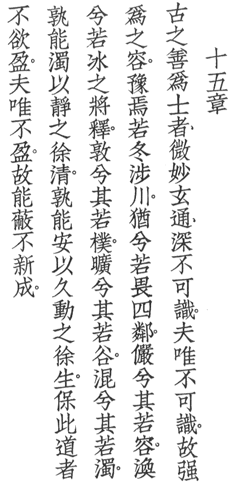 十五章
古之善爲士者、微妙玄通、深不可識。夫唯不可識。故强
爲之容。豫焉若冬涉川。猶兮若畏四鄰。儼兮其若容。渙
兮若冰之將釋。敦兮其若樸。曠兮其若谷。混兮其若濁。
孰能濁以靜之徐清。孰能安以久動之徐生。保此道者
不欲盈。夫唯不盈。故能蔽不新成。